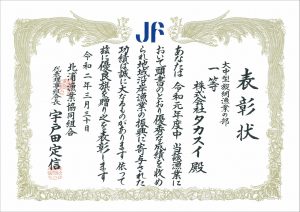 JF
表彰状
大中型まき網漁業の部
一等
株式会社タカスイ殿
あなたは令和元年度中当該漁業に
おいて頭書のとおり優秀な成績を収め
られ地域沿岸漁業の振興に寄与された
功績は誠に大なるものがあります依って
茲に優良旗を贈り之を表彰します
令和二年三月三十日
北浦漁業協同組合
代表理事組合長
宇戸田定信